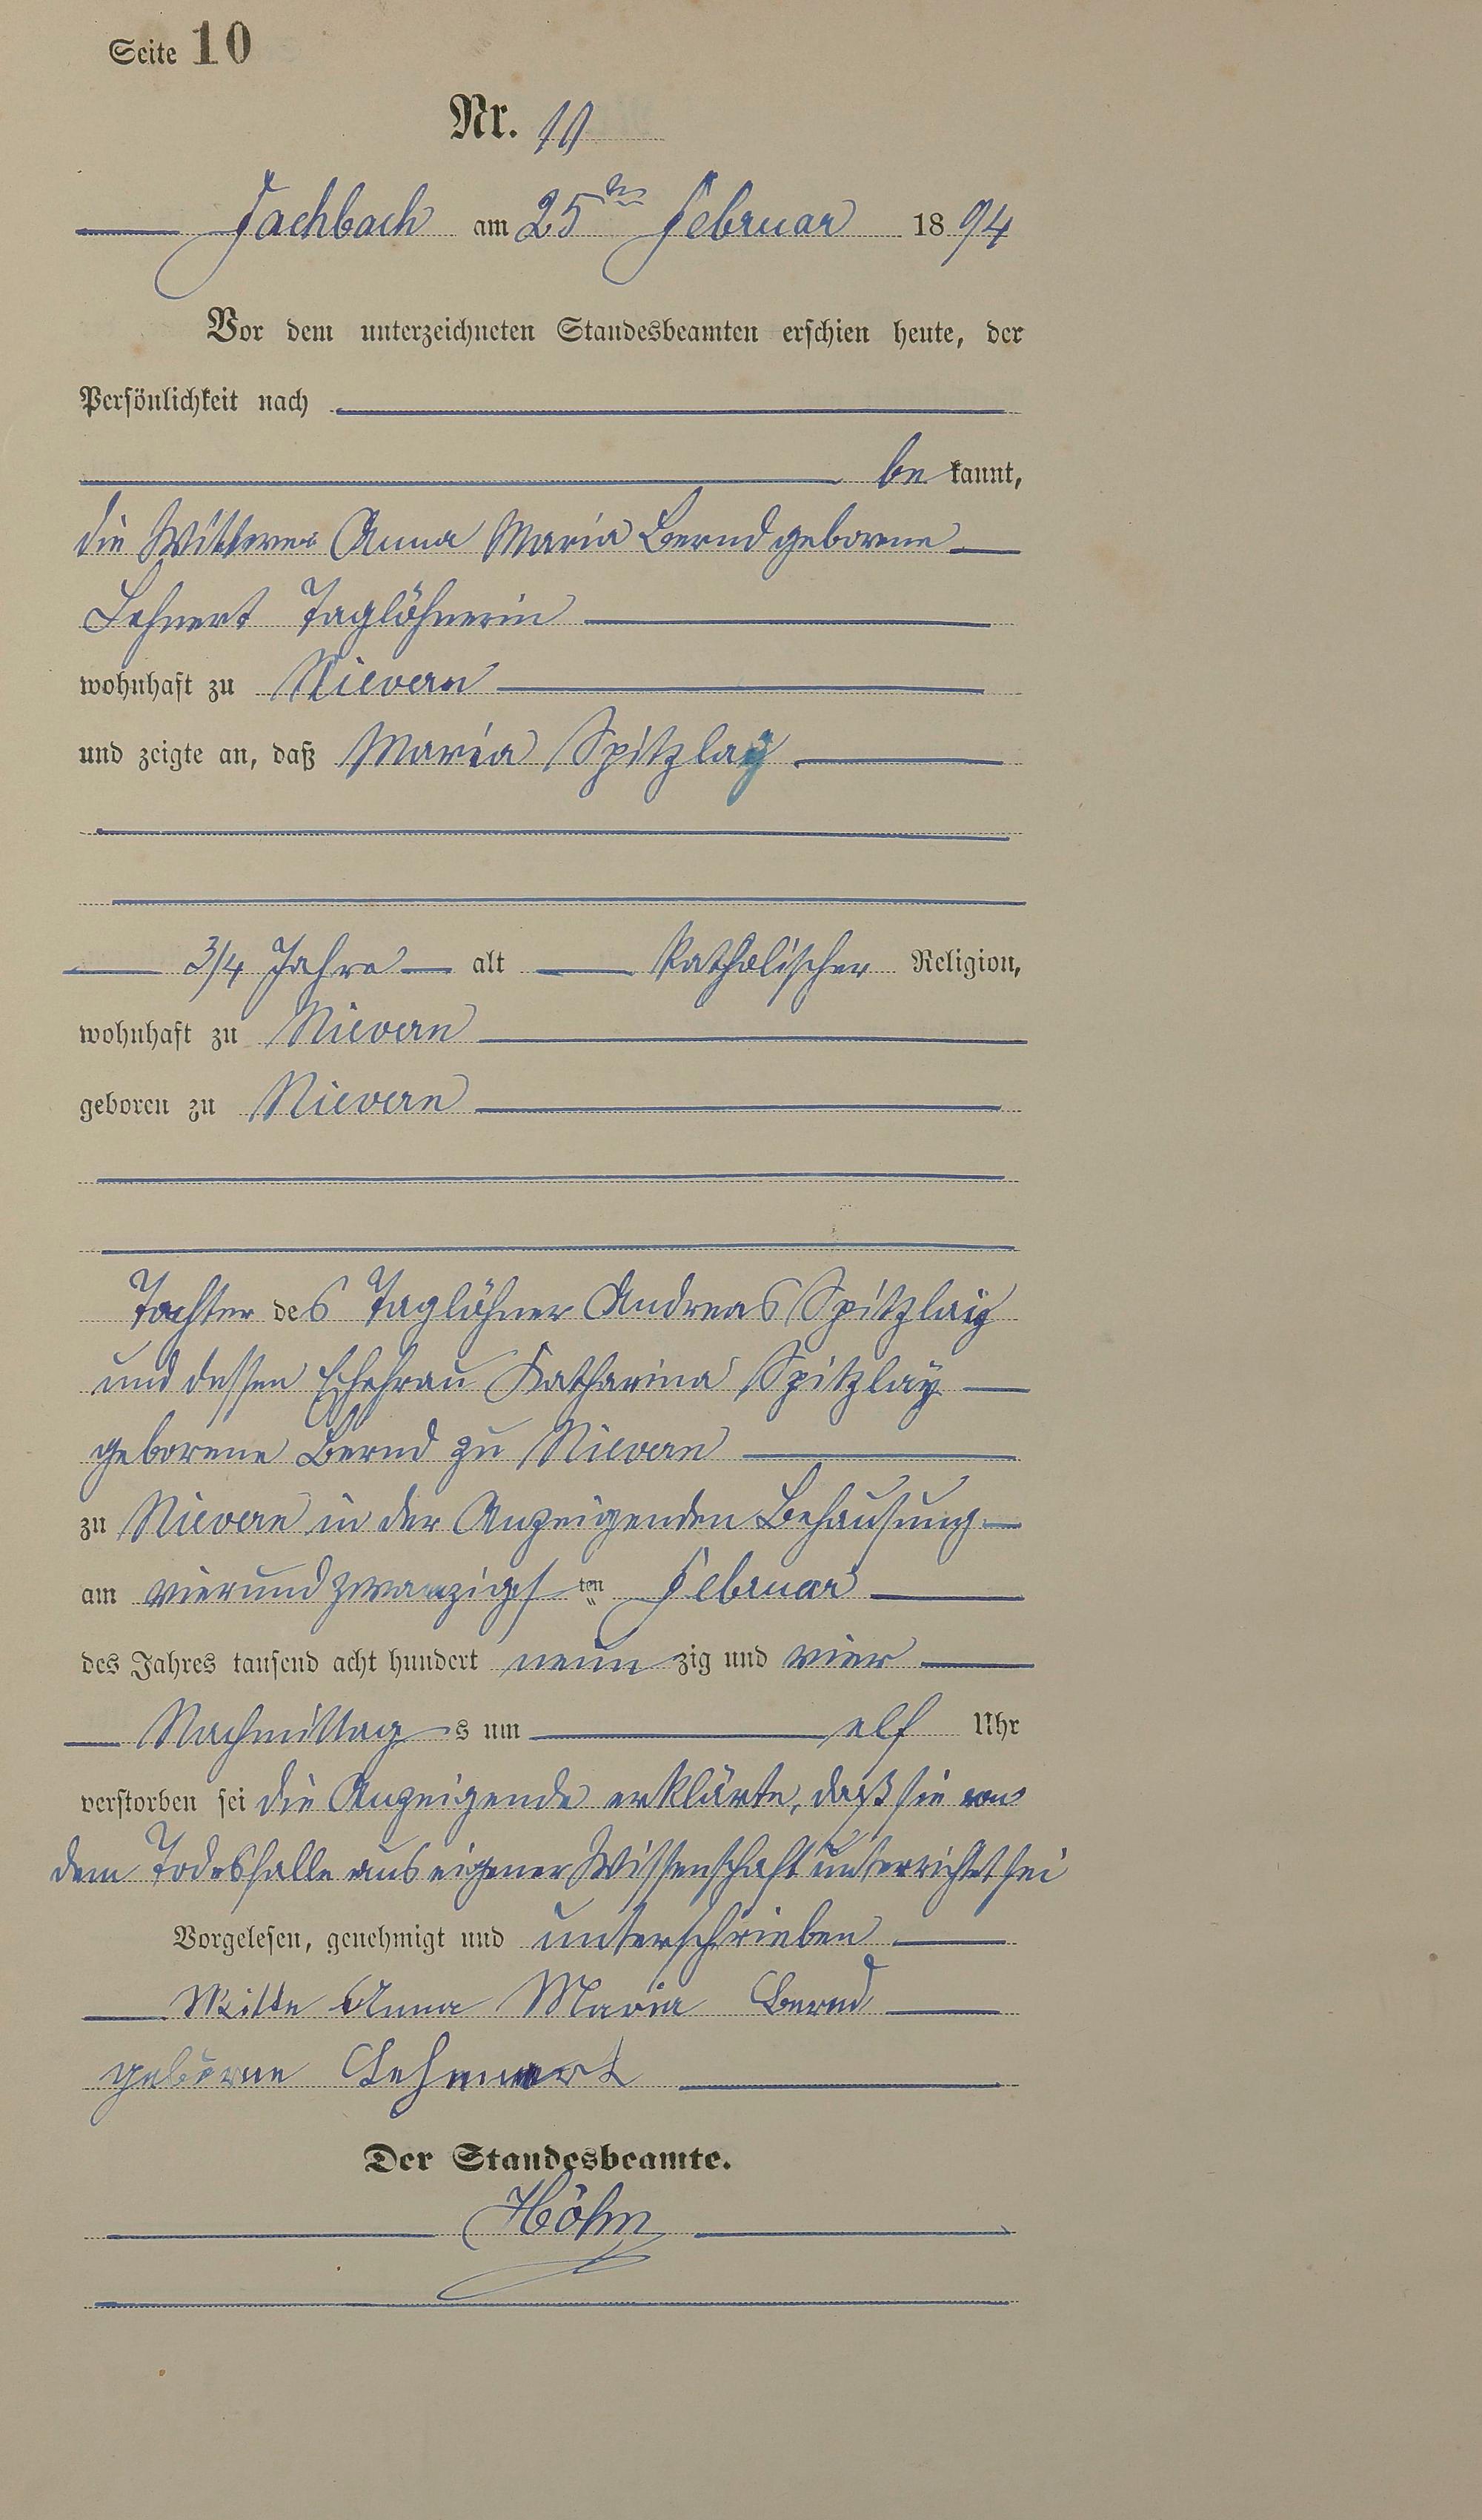 Seite 10
Nr. 10
Fachbach am 25ten Februar 1894
Vor dem unterzeichneten Standesbeamten erschien heute, der
Persönlichkeit nach
be kannt,
die Wittwe Anna Maria Bernd geborene
Lehnert Taglöhnerin
wohnhaft zu Nievern
und zeigte an, daß Maria Spitzlay
3/4 Jahre alt katholischer Religion,
wohnhaft zu Nievern
geboren zu Nievern
Tochter des Taglöhner Andreas Spitzlay
und dessen Ehefrau Katharina Spitzlay
geborene Bernd zu Nievern
zu Nievern in der Anzeigenden Behausung
am vierundzwanzigsten Februar
des Jahres tausend acht hundert neunzig und vier
Nachmittags um elf Uhr
verstorben sei die Anzeigende erklärte, daß sie von
dem Todesfalle aus eigener Wissenschaft unterrichtet sei
Vorgelesen, genehmigt und unterschrieben
Witte Anna Maria Bernd
geborne Lehnert
Der Standesbeamte.
Höhn